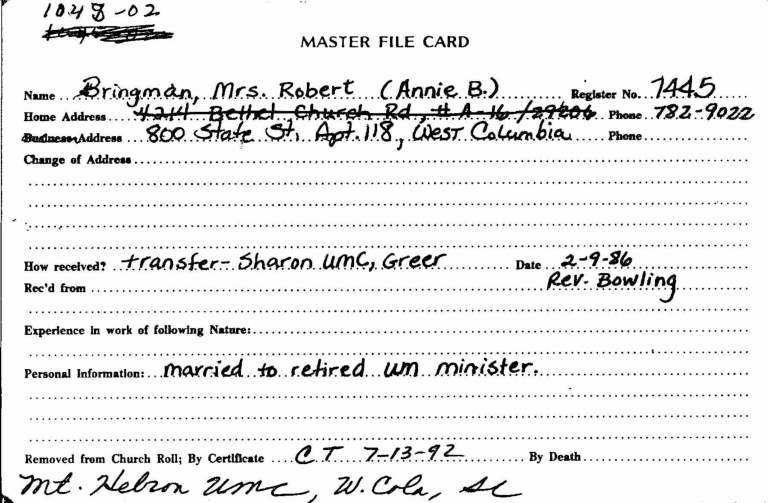 1048-02
MASTER FILE CARD
Name Bringman, Mrs. Robert (Annie B.) Register No. 7445
Home Address 4214 Bethel Church Rd, # A-16/29206 Phone 782-9022
Business Address 800 State St, Apt. 118, West Columbia Phone
Change of Address
How received? transfer- Sharon UMC, Greer Date 2-9-86
Rec'd from Rev. Bowling
Experience in work of following Nature:
Personal Information: married to retired um minister.
Removed from Church Roll; By Certificate CT 7-13-92 By Death
Mt. Hebron UMC, W. Cola, SC